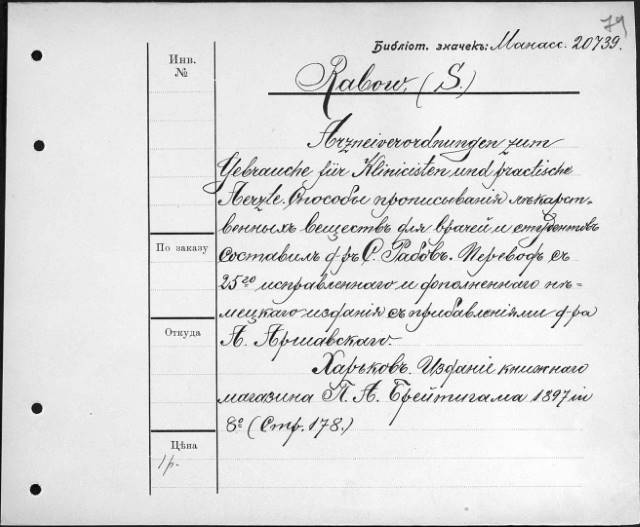 79
Библіот. значекъ: Манасс. 20739.
Инв.
№
Rabow, (S.)
Arzneiverordnungen zum
Gebrauche für Klinicisten und practische
Aerzte. Способы прописыванія лѣкарст-
венныхъ веществъ для врачей и студентовъ
По заказу
составилъ д-ръ С. Рабовъ. Переводъ съ
25го исправленнаго и дополненнаго нѣ-
мецкаго изданія съ прибавленіями д-ра
Откуда
А. Аршавскаго.
Харьковъ. Изданіе книжнаго
магазина П. А. Брейтигама 1897 in
8º (Стр. 178.)
Цѣна
1 р.